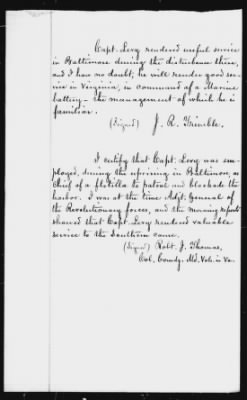 Capt. Levy rendered useful service
in Baltimore during the disturbance there,
and I have no doubt, he will render good ser-
vice in Virginia, in command of a Marine
battery - the management of which he is
familiar.
(Signed) J. R. Trimble.
I certify that Capt. Levy was em-
ployed, during the uprising in Baltimore, as
Chief of a flotilla to patrol and blockade the
harbor. I was at the time Adjt. General of
the Revolutionary forces, and the morning reports
showed that Capt. Levy rendered valuable
service to the Southern cause.
(Signed) Robt. J. Thomas,
Col. Comdg. Md. Vols. in Va.